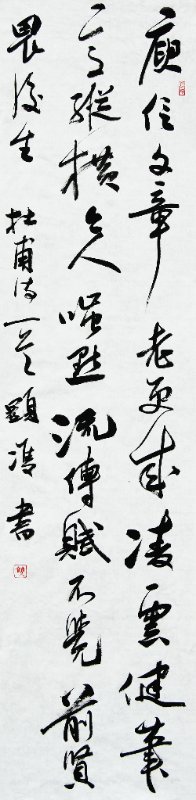 庾信文章老更成凌雲健筆
意縱橫今人嗤點流傳賦不覺前賢
畏後生 杜甫詩一首 書